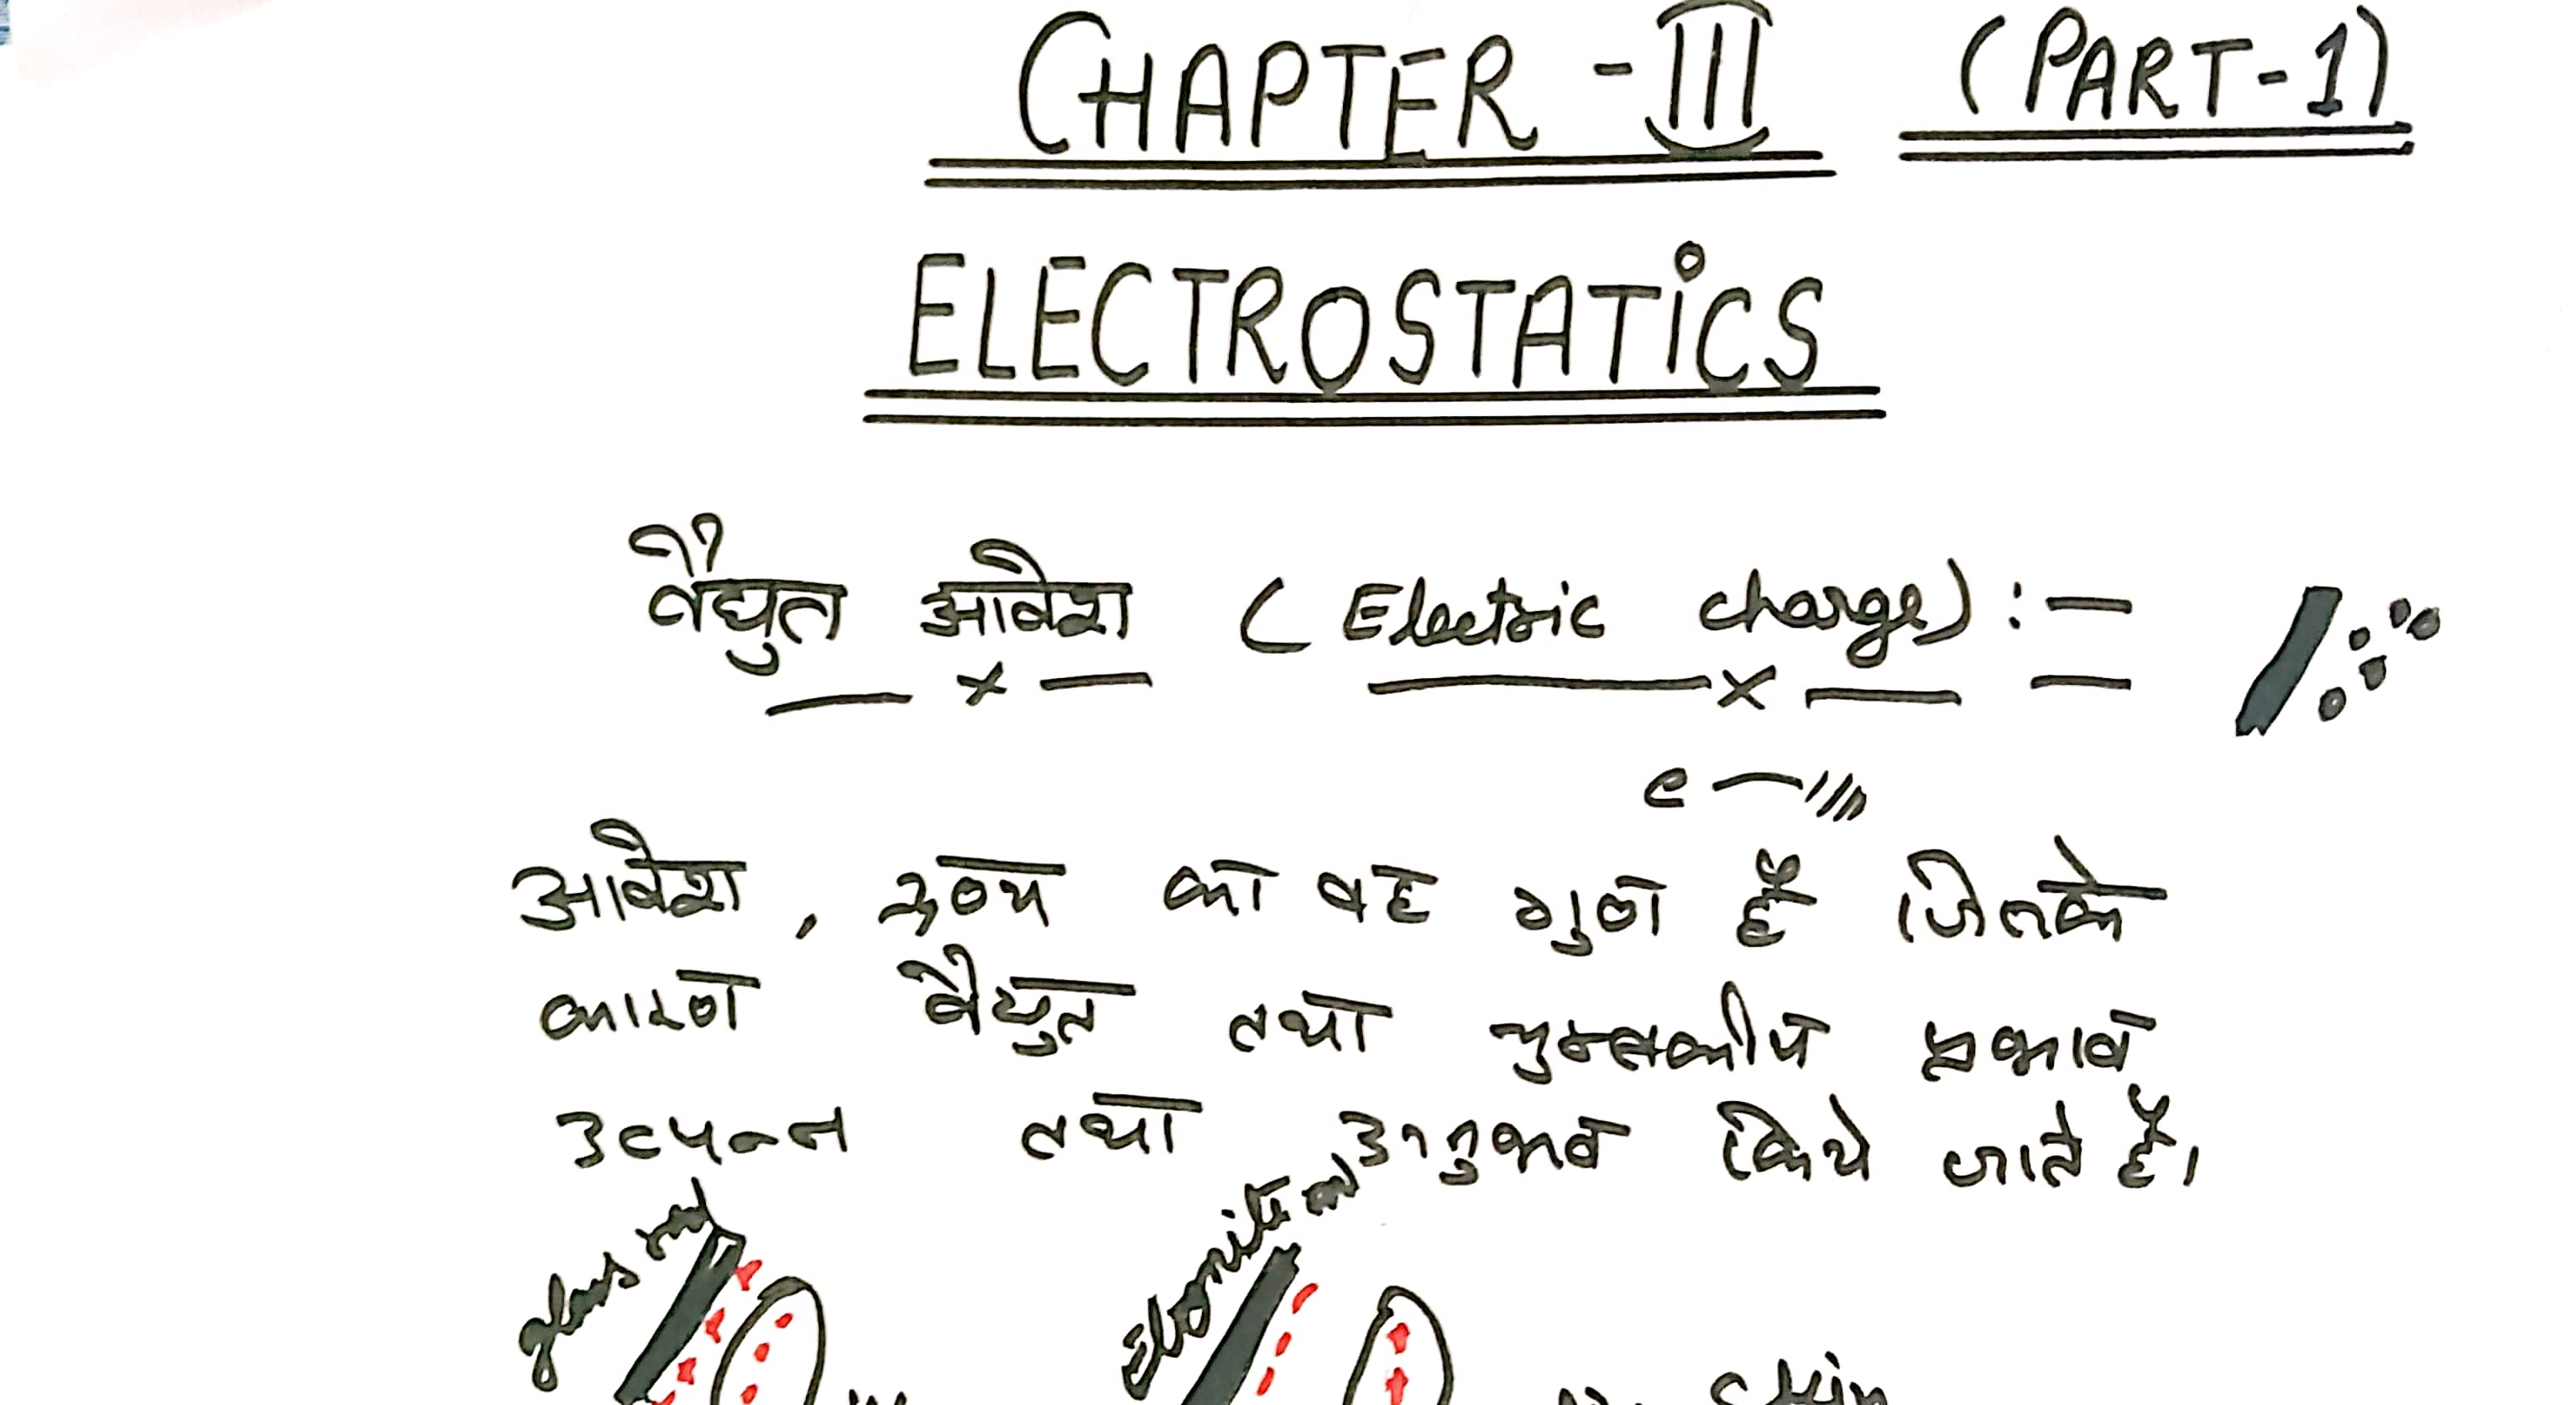 CHAPTER - III (PART-1)
ELECTROSTATICS
वैद्युत आवेश (Electric charge) : -
e
आवेश , द्रव्य का वह गुण है जिसके
कारण वैद्युत तथा चुम्बकीय प्रभाव
उत्पन्न तथा अनुभव किये जाते हैं।
glass rod Ebonite rod
skin